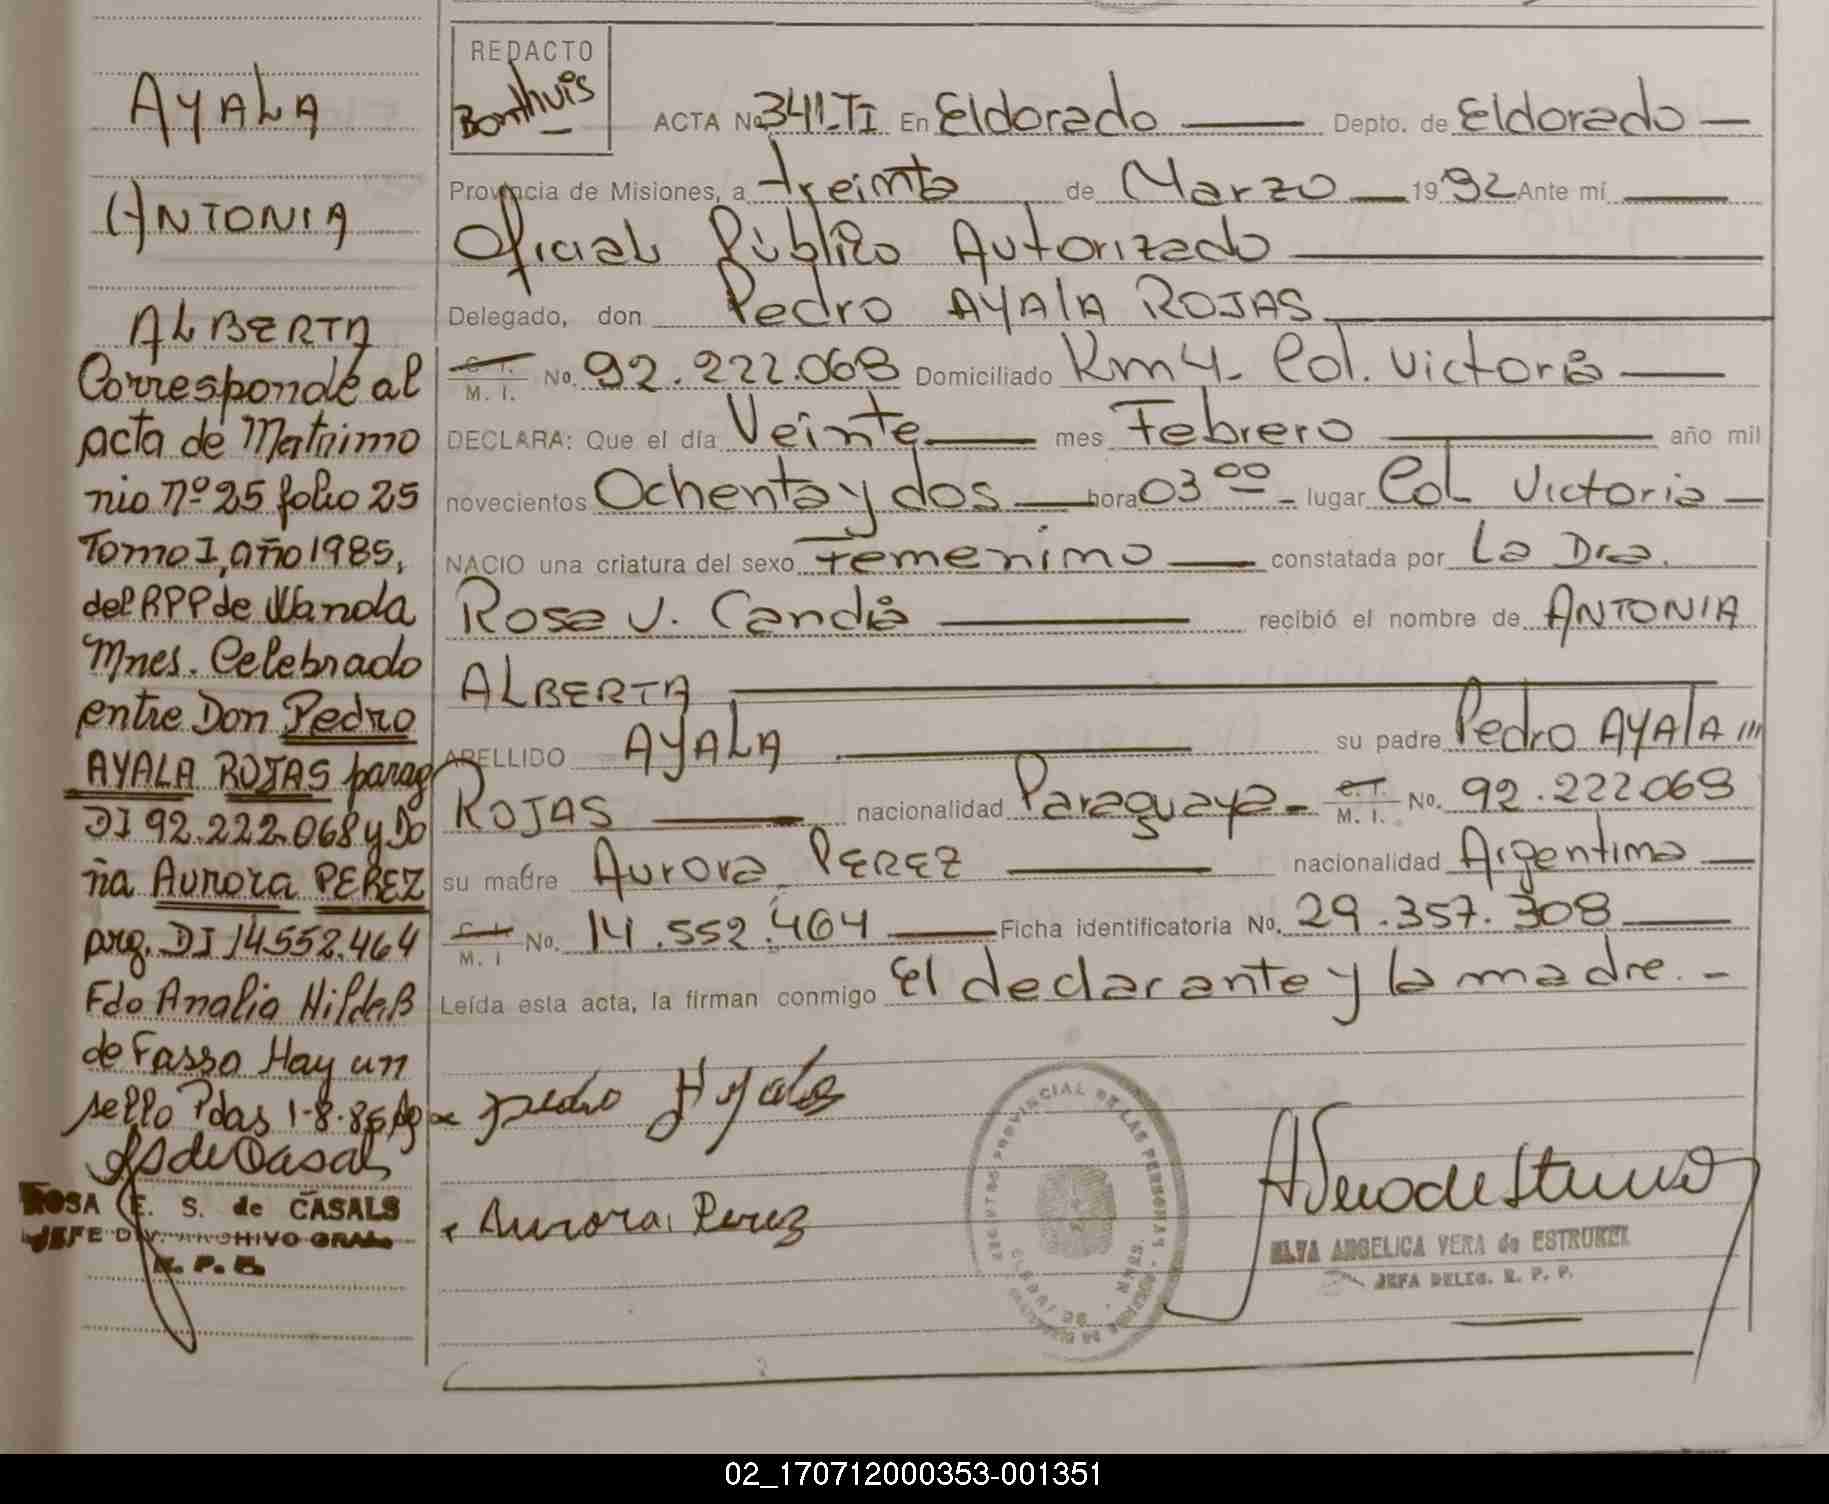 AYALA
ANTONIA
ALBERTA
Corresponde al
acta de Matrimo
nio nº 25 folio 25
Tomo I, año 1985,
del RPP de Wanda
Mnes. Celebrado
entre Don Pedro
AYALA ROJAS parag
DI 92.222.068 y Do
ña Aurora PEREZ
prg. DI 14.552.464
Fdo Analia Hilda B
de Fasso Hay un
sello Pdas 1-8-86
ROSA E. S. de CASALS
JEFE DIV. ARCHIVO GRAL.
R. P. P.
REDACTO
Bonthuis
ACTA No 341-TI En Eldorado Depto. de Eldorado
Provincia de Misiones, a treinta de Marzo 1992 Ante mí
Oficial Público Autorizado
Delegado, don Pedro AYALA ROJAS
C. I.
M. I. No. 92.222.068 Domiciliado Km 4- Col. Victoria
DECLARA: Que el día Veinte mes Febrero año mil
novecientos Ochenta y dos hora 03 00 - lugar Col Victoria
NACIO una criatura del sexo Femenino constatada por La Dra.
Rosa V. Candia recibió el nombre de ANTONIA
ALBERTA
APELLIDO AYALA su padre Pedro AYALA ///
ROJAS nacionalidad Paraguaya - C. I. M. I. No. 92.222.068
su madre Aurora PEREZ nacionalidad Argentina
C. I.
M. I No. 14.552.464 Ficha identificatoria No. 29.357.308
Leída esta acta, la firman conmigo El declarante y la madre. -
pedro Ayala
Aurora Perez
REGISTRO PROVINCIAL DE LAS PERSONAS
ELVA ANGELICA VERA de ESTRUKEL
JEFA DELEG. R. P. P.
02_170712000353-001351